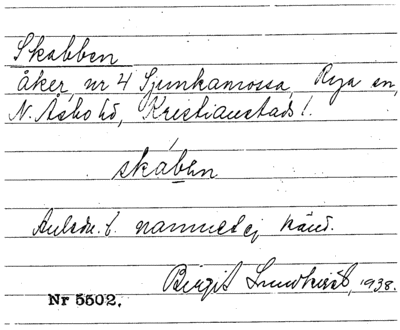 Skabben
åker, nr 4 Sjunkamossa, Rya sn,
N. Åsbo hd, Kristianstads l.
skáben
namnet ej känd.
Birgit Lundkvist, 1938.
Nr 5502.